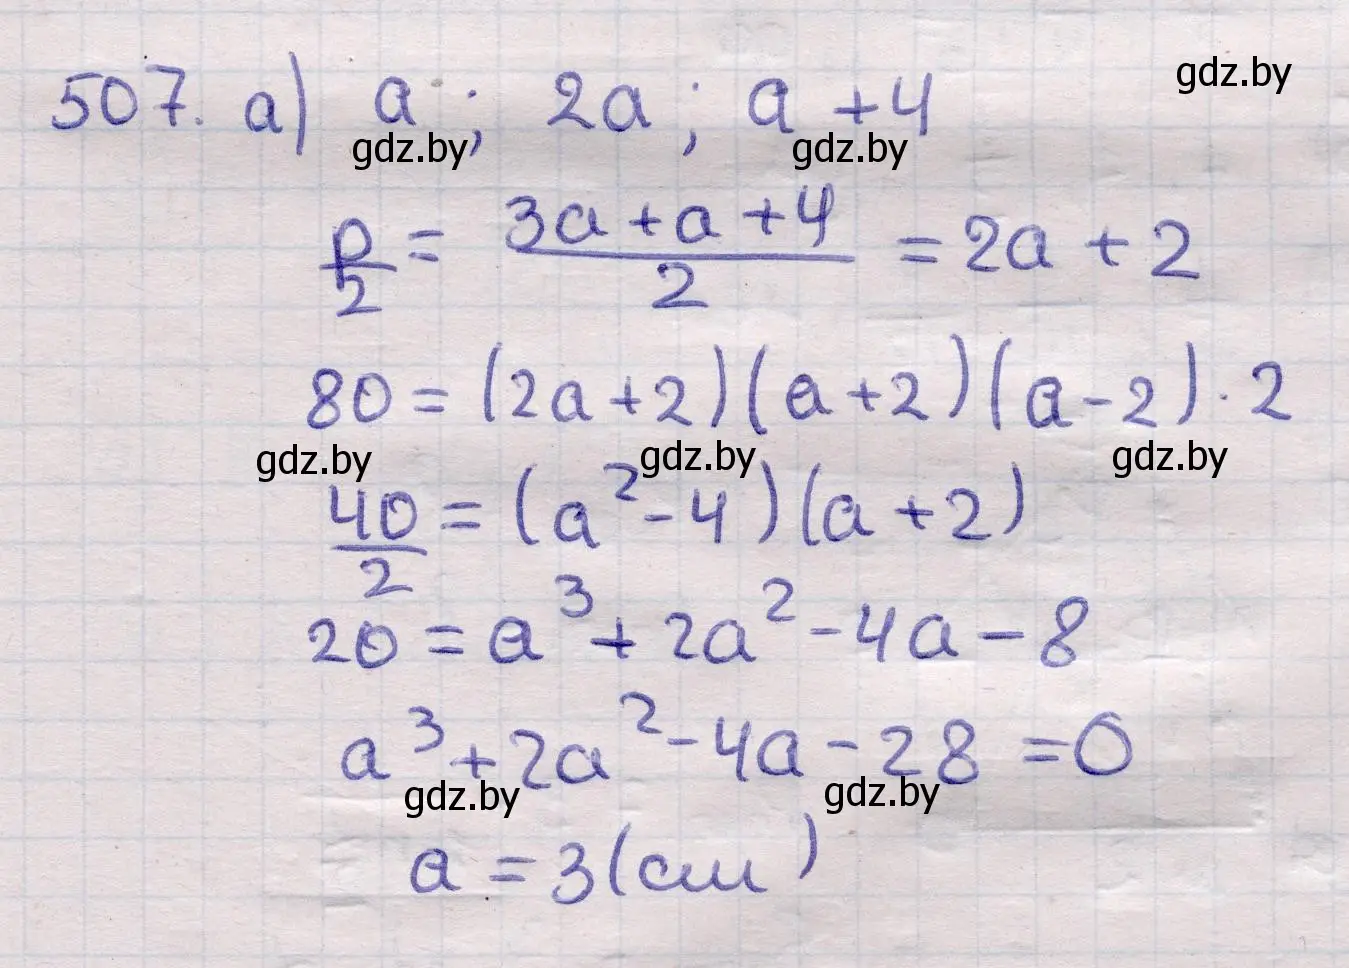 gdz.by
507. а) a; 2a; a+4
gdz.by gdz.by
p/2 = (3a+a+4)/2 = 2a+2
80 = (2a+2)(a+2)(a-2)·2
gdz.by gdz.by gdz.by
40/2 = (a²-4)(a+2)
20 = a³+2a²-4a-8
a³+2a²-4a-28=0
gdz.by gdz.by
a = 3(см)